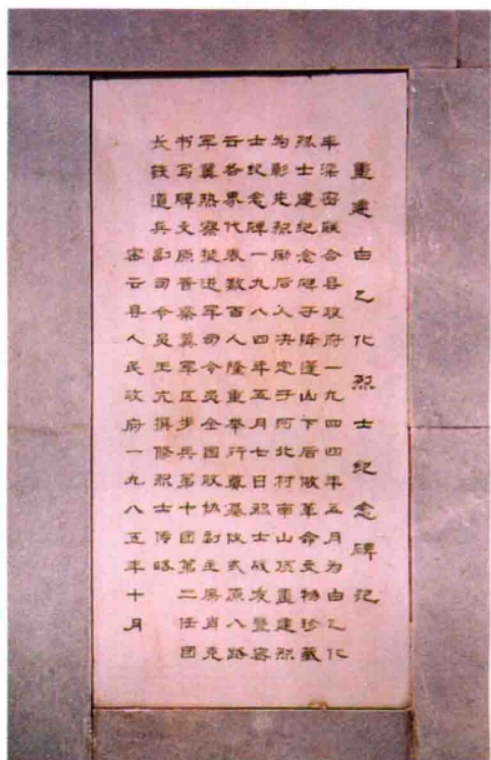 重建白乙化烈士纪念碑记
丰滦密联合县政府一九四四年五月为白乙化
烈士建纪念碑于降蓬山下后做革命文物珍藏
为彰先烈励后人决定于河北村南山顶重建烈
士纪念碑一九八四年五月七日烈士战友暨密
云各界代表数百人隆重举行奠基仪式原八路
军冀热察挺进军司令员全国政协副主席肖克
书写碑文原晋察冀军区步兵第十团第二任团
长铁道兵副司令员王亢撰修烈士传略
密云县人民政府一九八五年十月